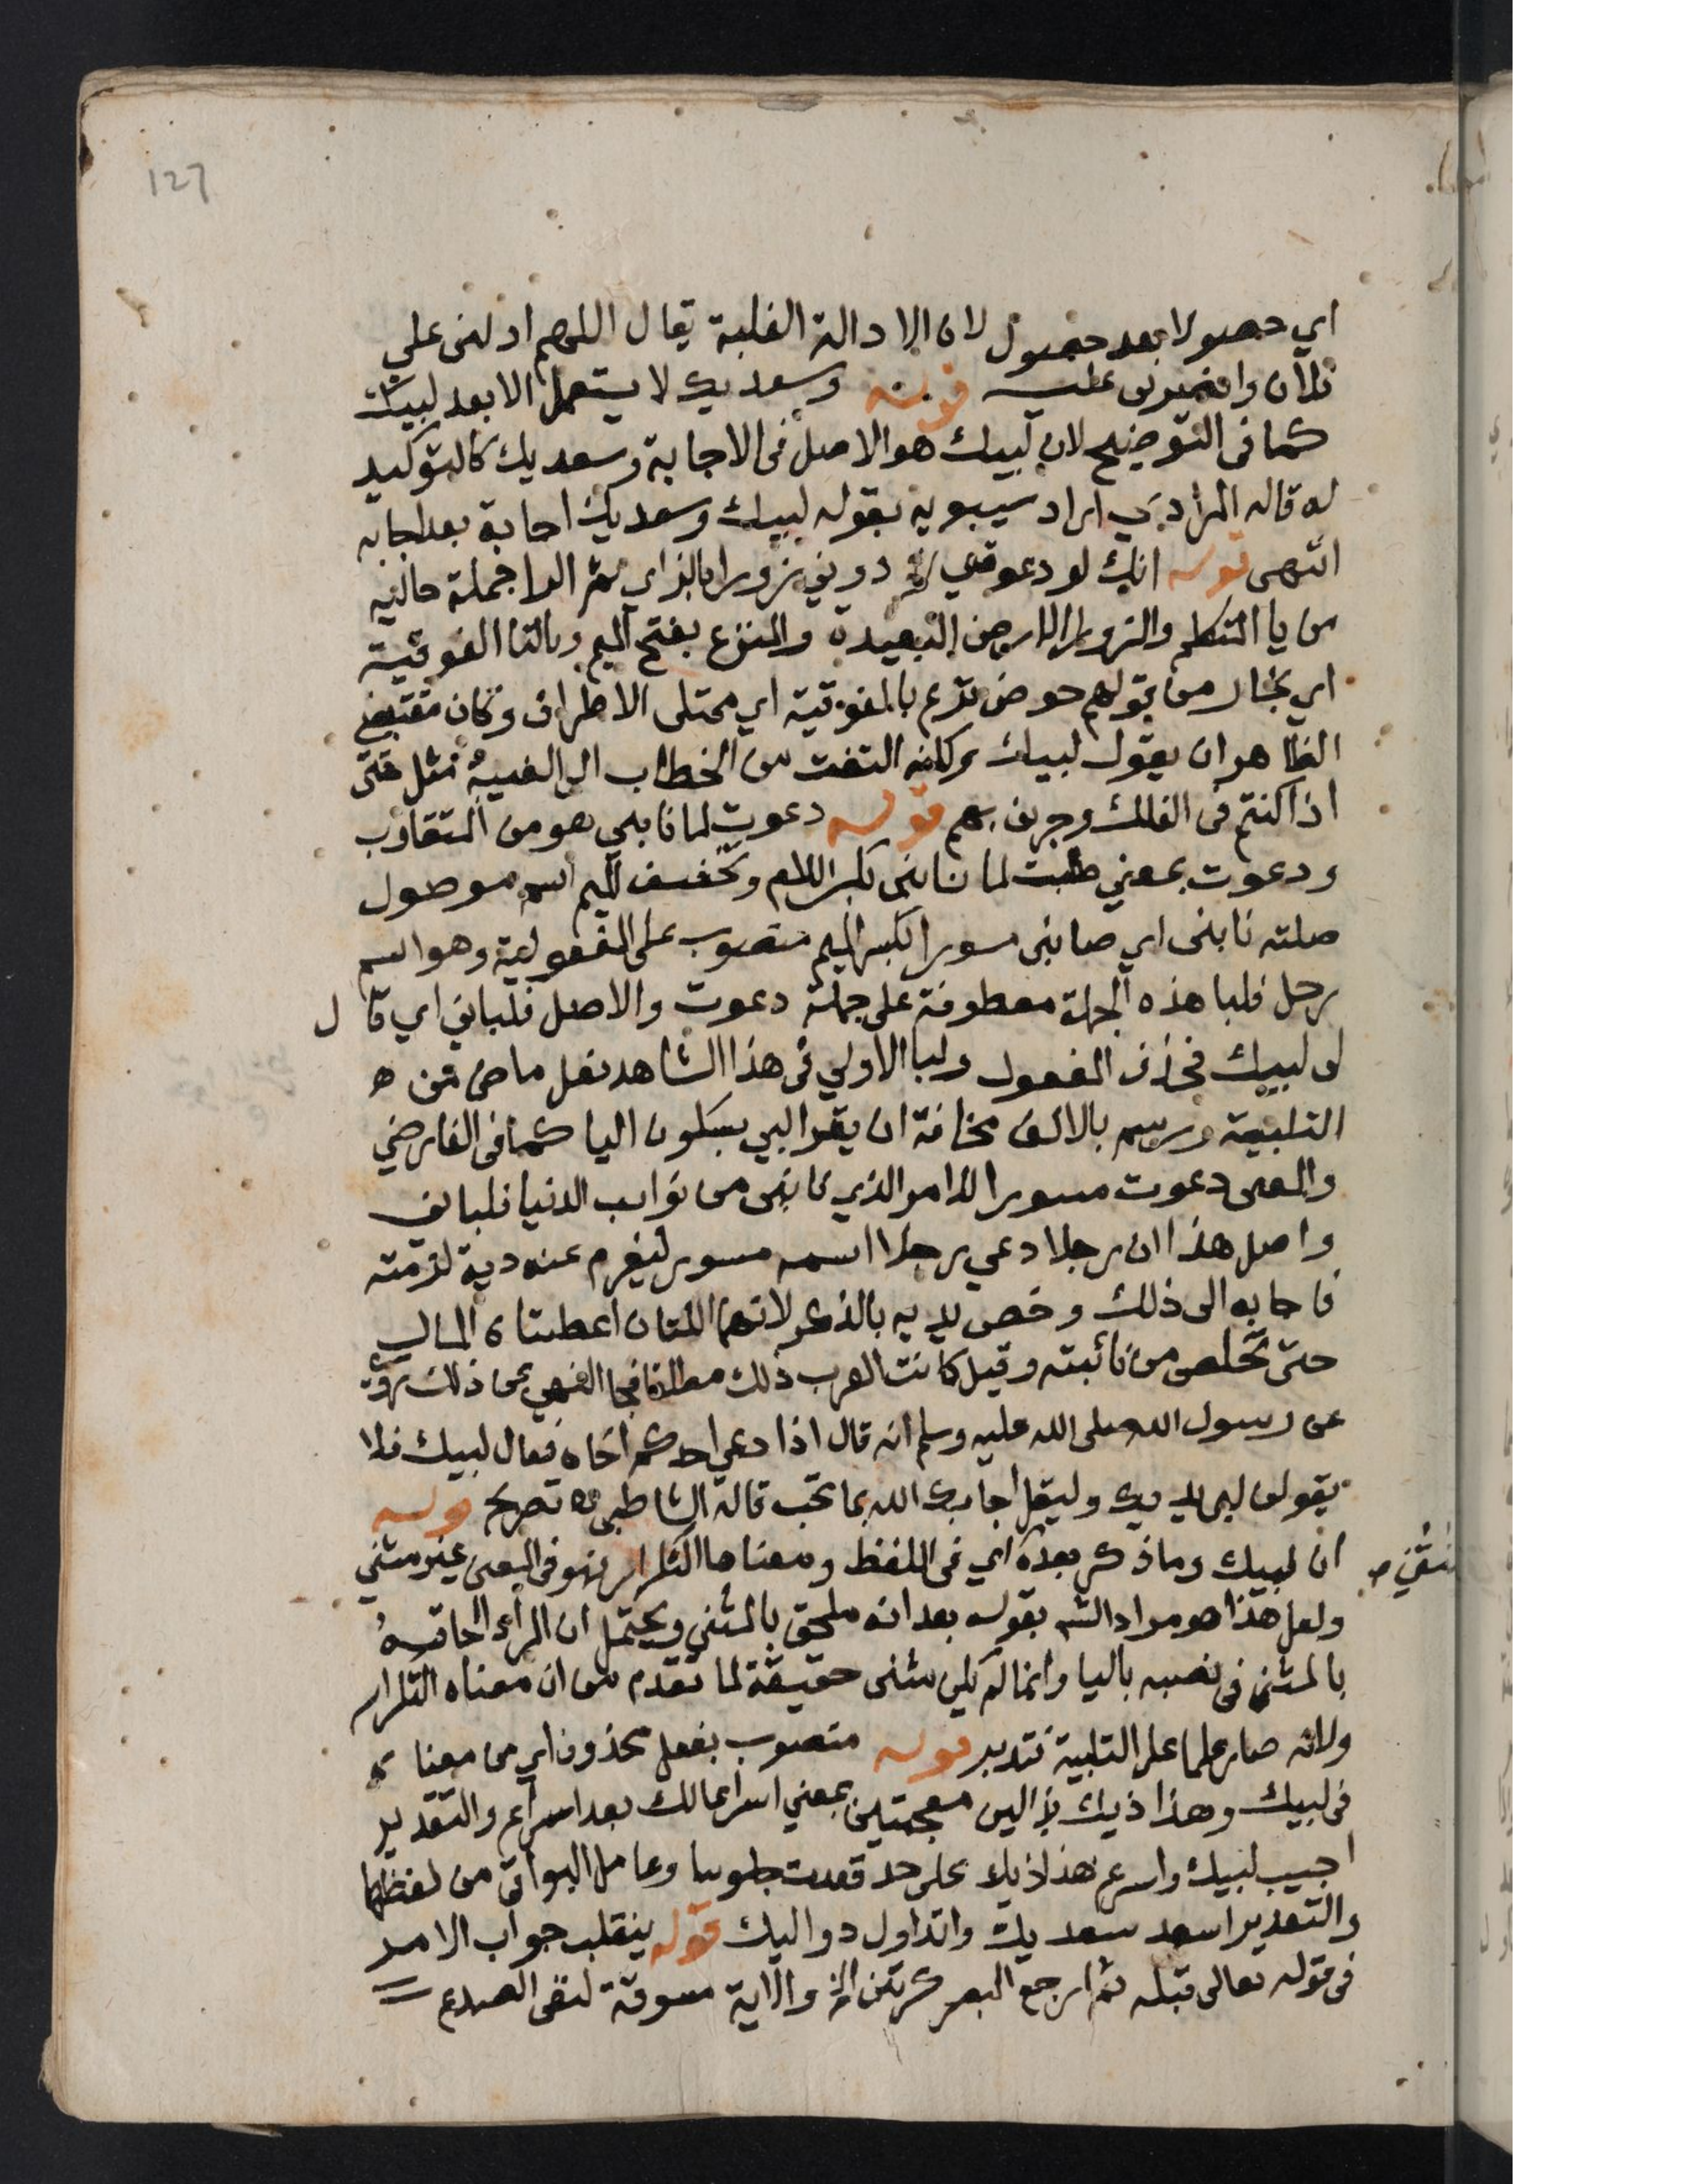 127
اي حصولا بعد حصول لان الادالة الغلبة يقال اللهم ادلنى على
فلان وانصرنى عليه قوله وسعديك لا يستعمل الا بعد لبيك
كما فى التوضيح لان لبيك هو الاصل فى الاجابة وسعديك كالتوكيد
له قاله المرادي اراد سيبويه بقوله لبيك وسعديك اجابة بعد اجابه
انتهى قوله انك لو دعوتني الخ دوني زورا بالزاي ثم الرا جملة حاليه
من يا المتكلم والزورا الارض البعيدة والمنزع بفتح الميم وبالتا الفوقية
اي بخار من قولهم حوض ترع بالفوقية اي ممتلى الاطراف وكان مقتضى
الظاهر ان يقول لبيك لكنه التفت من الخطاب الى الغيبة مثل حتى
اذا كنتم فى الفلك وجرين بهم قوله دعوت لما نابني هو من المتقارب
ودعوت بمعني طلبت لما نابنى بكسر اللام وتخفيف الميم اسم موصول
صلته نابنى اي صابنى مسورا بكسر الميم منصوب على المفعولية وهو اسم
رجل فلبا هذه الجملة معطوفة على جملة دعوت والاصل فلبانى اي قال
لى لبيك فحذف المفعول ولبا الاولي فى هذا الشاهد فعل ماض من
التلبية ورسم بالالف مخافة ان يقرا لبي بسكون اليا كما فى الفارضي
والمعنى دعوت مسورا للامر الذي نابنى من نوايب الدنيا فلبانى
واصل هذا ان رجلا دعي رجلا اسمه مسور ليغرم عنه دية لزمته
فاجابه الى ذلك وخص يديه بالذكر لانهما اللتان اعطتاه المال
حتى تخلص من نائبته وقيل كانت العرب ذلك مطلقا فجا النهي عن ذلك روي
عن رسول الله صلى الله عليه وسلم انه قال اذا دعي احدكم اخاه فقال لبيك فلا
يقولن لبى يديك وليقل اجابك الله بما تحب قاله الشاطبى اه تصريح قوله
ان لبيك وما ذكر بعده اي فى اللفظ ومعناها التكرار فهو فى المعنى غير مثني
ولعل هذا هو مراد الش بقوله بعد انه ملحق بالمثني ويحتمل ان المراد الحاقه
بالمثنى فى نصبه باليا وانما لم يكن مثنى حقيقة لما تقدم من ان معناه التكرار
ولانه صار علما على التلبية فتدبر قوله منصوب بفعل محذوف اي من معناه
فى لبيك وهذا ذيك بذالين معجمتين بمعني اسراعا لك بعد اسراع والتقدير
اجيب لبيك واسرع هذاذيك على حد قعدت جلوسا وعامل البواقى من لفظها
والتقدير اسعد سعديك واتداول دواليك قوله ينقلب جواب الامر
فى قوله تعالى قبله ثم ارجع البصر كرتين الخ والاية مسوقة لنفى الصدع